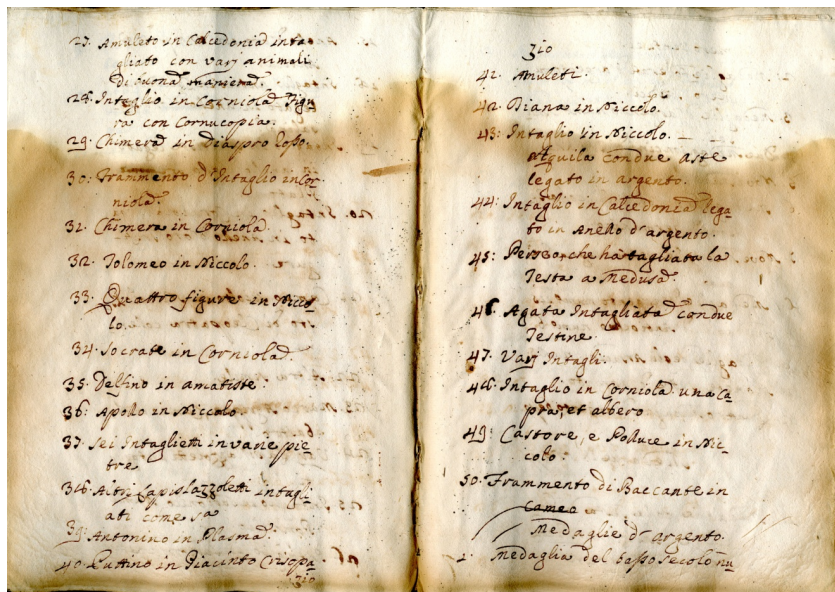 27. Amuleto in Calcedonia inta
gliato con varj animali
di buona maniera.
28. Intaglio in Corniola Figu
ra con Cornucopia.
29. Chimera in Diaspro Rosso.
30: Frammento d'Intaglio in Cor
niola.
31. Chimera in Corniola.
32. Tolomeo in Niccolo.
33. Quattro figure in Nicco
lo.
34. Socrate in Corniola.
35. Delfino in amatiste:
36: Apollo in Niccolo.
37. Sei Intaglietti in varie pie
tre
38. Altri Lapislazzoletti intagli
ati come sa
39. Antonino in Plasma.
40. Puttino in Giacinto Crisopa
zio
zio
41. Amuleti.
42. Diana in Niccolo.
43: Intaglio in Niccolo.
Aquila con due aste
legato in argento.
44: Intaglio in Calcedonia lega
to in Anello d'argento.
45: Perseo, che ha tagliata la
Testa a Medusa.
46 Agata Intagliata con due
Testine.
47. Varj Intagli.
48: Intaglio in Corniola una Ca
pra, et albero
49: Castore, e Polluce in Nic
colo:
50. Frammento di Baccante in
cameo
Medaglie d'argento.
1. Medaglia del basso secolo nu